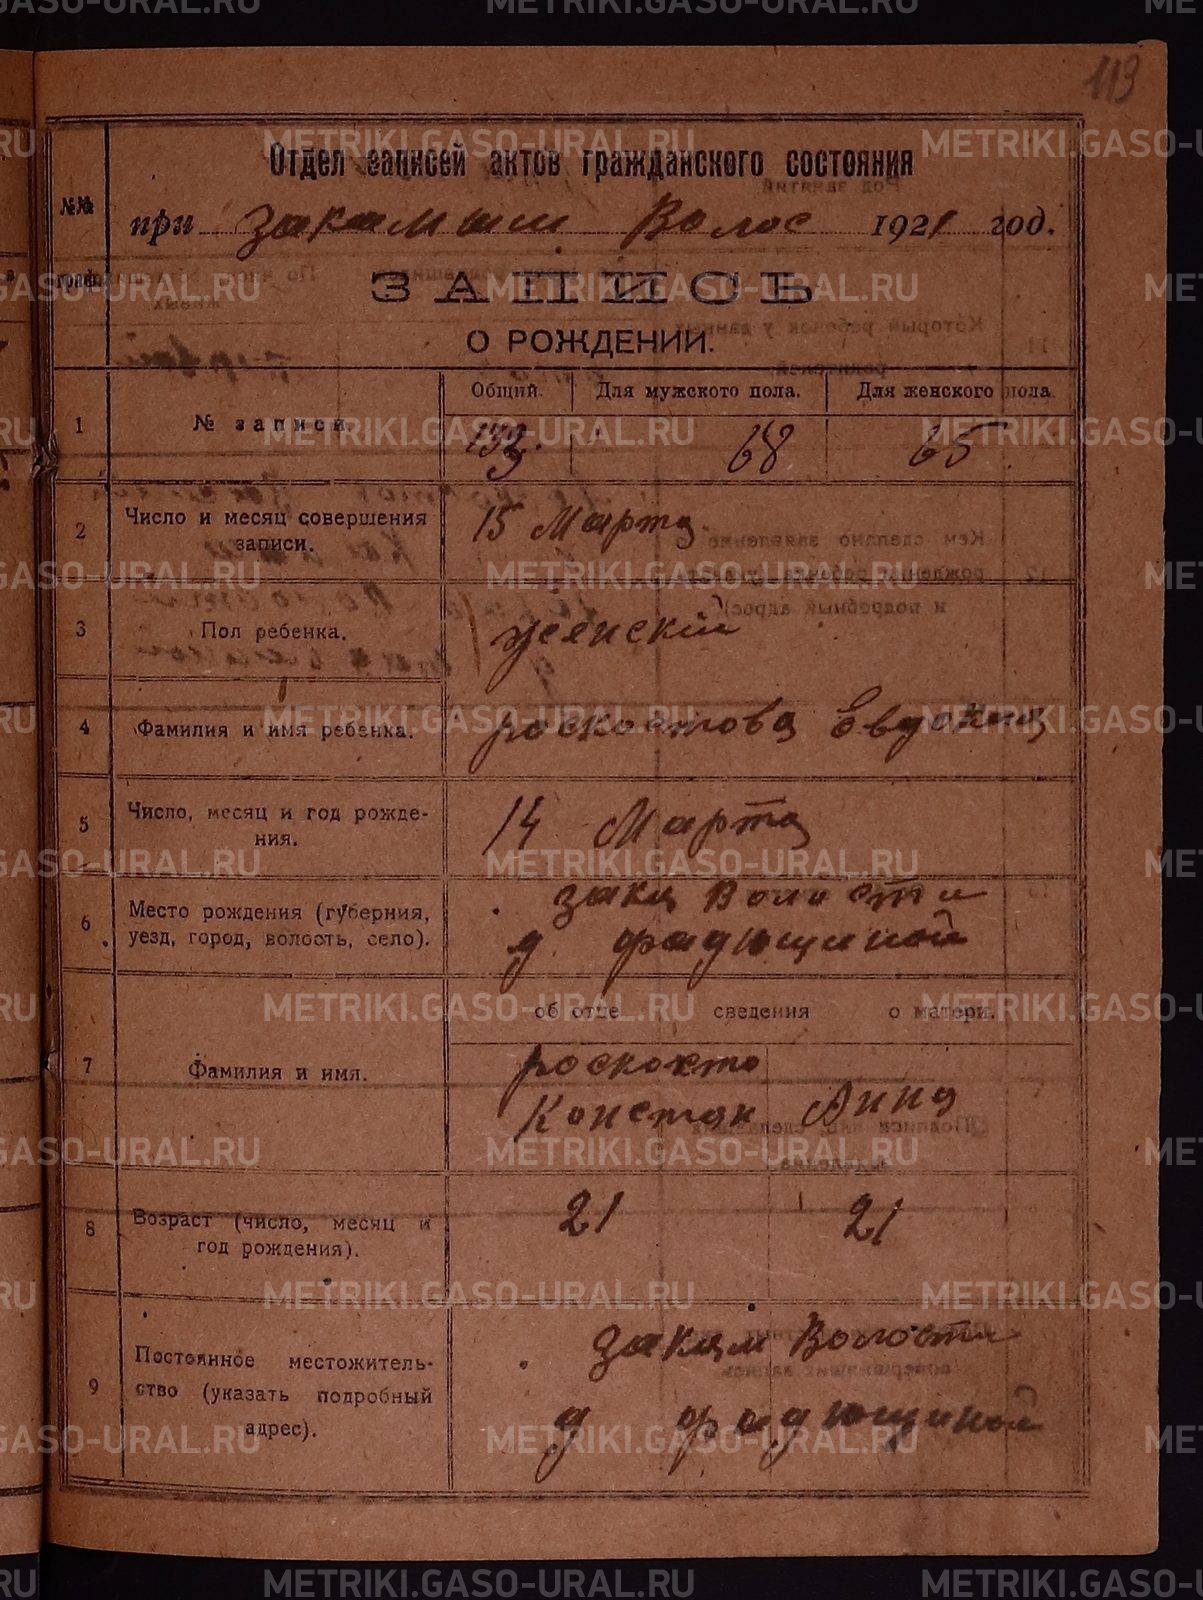 113
Отдел записей актов гражданского состояния
№№ графы
при Закамыш Волос 1921 год.
ЗАПИСЬ
О РОЖДЕНИИ.
1 № записи
Общий. Для мужского пола. Для женского пола.
133. 68 65
2 Число и месяц совершения записи.
15 Марта
3 Пол ребенка.
женский
4 Фамилия и имя ребенка.
роскостова Евдокия
5 Число, месяц и год рождения.
14 Марта
6 Место рождения (губерния, уезд, город, волость, село).
Зака Волости
д фадюшиной
об отце сведения о матери.
7 Фамилия и имя.
роскосто
Констан Анна
8 Возраст (число, месяц и год рождения).
21 21
9 Постоянное местожительство (указать подробный адрес).
Закам Волости
д фадюшиной
METRIKI.GASO-URAL.RU